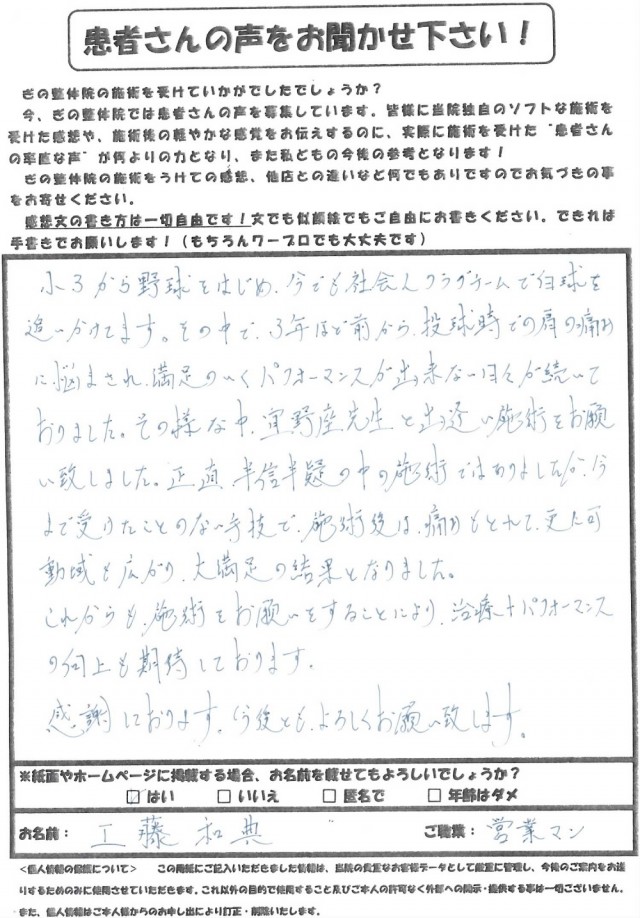 患者さんの声をお聞かせ下さい！
ぎの整体院の施術を受けていかがでしたでしょうか？
今、ぎの整体院では患者さんの声を募集しています。皆様に当院独自のソフトな施術を
受けた感想や、施術後の軽やかな感覚をお伝えするのに、実際に施術を受けた“患者さん
の率直な声”が何よりの力となり、また私どもの今後の参考となります！
ぎの整体院の施術をうけての感想、他店との違いなど何でもありですのでお気づきの事
をお寄せください。
感想文の書き方は一切自由です！文でも似顔絵でもご自由にお書きください。できれば
手書きでお願いします！（もちろんワープロでも大丈夫です）
小3から野球をはじめ、今でも社会人クラブチームで白球を
追いかけてます。その中で、3年ほど前から、投球時での肩の痛み
に悩まされ、満足のいくパフォーマンスが出来ない日々が続いて
おりました。その様な中、宜野座先生と出逢い施術をお願
い致しました。正直、半信半疑の中の施術ではありましたが、今
まで受けたことのない手技で、施術後は、痛みもとれて、更に可
動域も広がり、大満足の結果となりました。
これからも、施術をお願いをすることにより、治療＋パフォーマンス
の向上も期待しております。
感謝しております。今後とも、よろしくお願い致します。
※紙面やホームページに掲載する場合、お名前を載せてもよろしいでしょうか？
☑はい □いいえ □匿名で □年齢はダメ
お名前： 工藤和典 ご職業： 営業マン
<個人情報の保護について> この用紙にご記入いただきました情報は、当院の貴重なお客様データとして厳重に管理し、今後のご案内をお送
りするためのみに使用させていただきます。これ以外の目的で使用すること及びご本人の許可なく外部への開示・提供する事は一切ございません。
また、個人情報はご本人様からのお申し出により訂正・削除いたします。